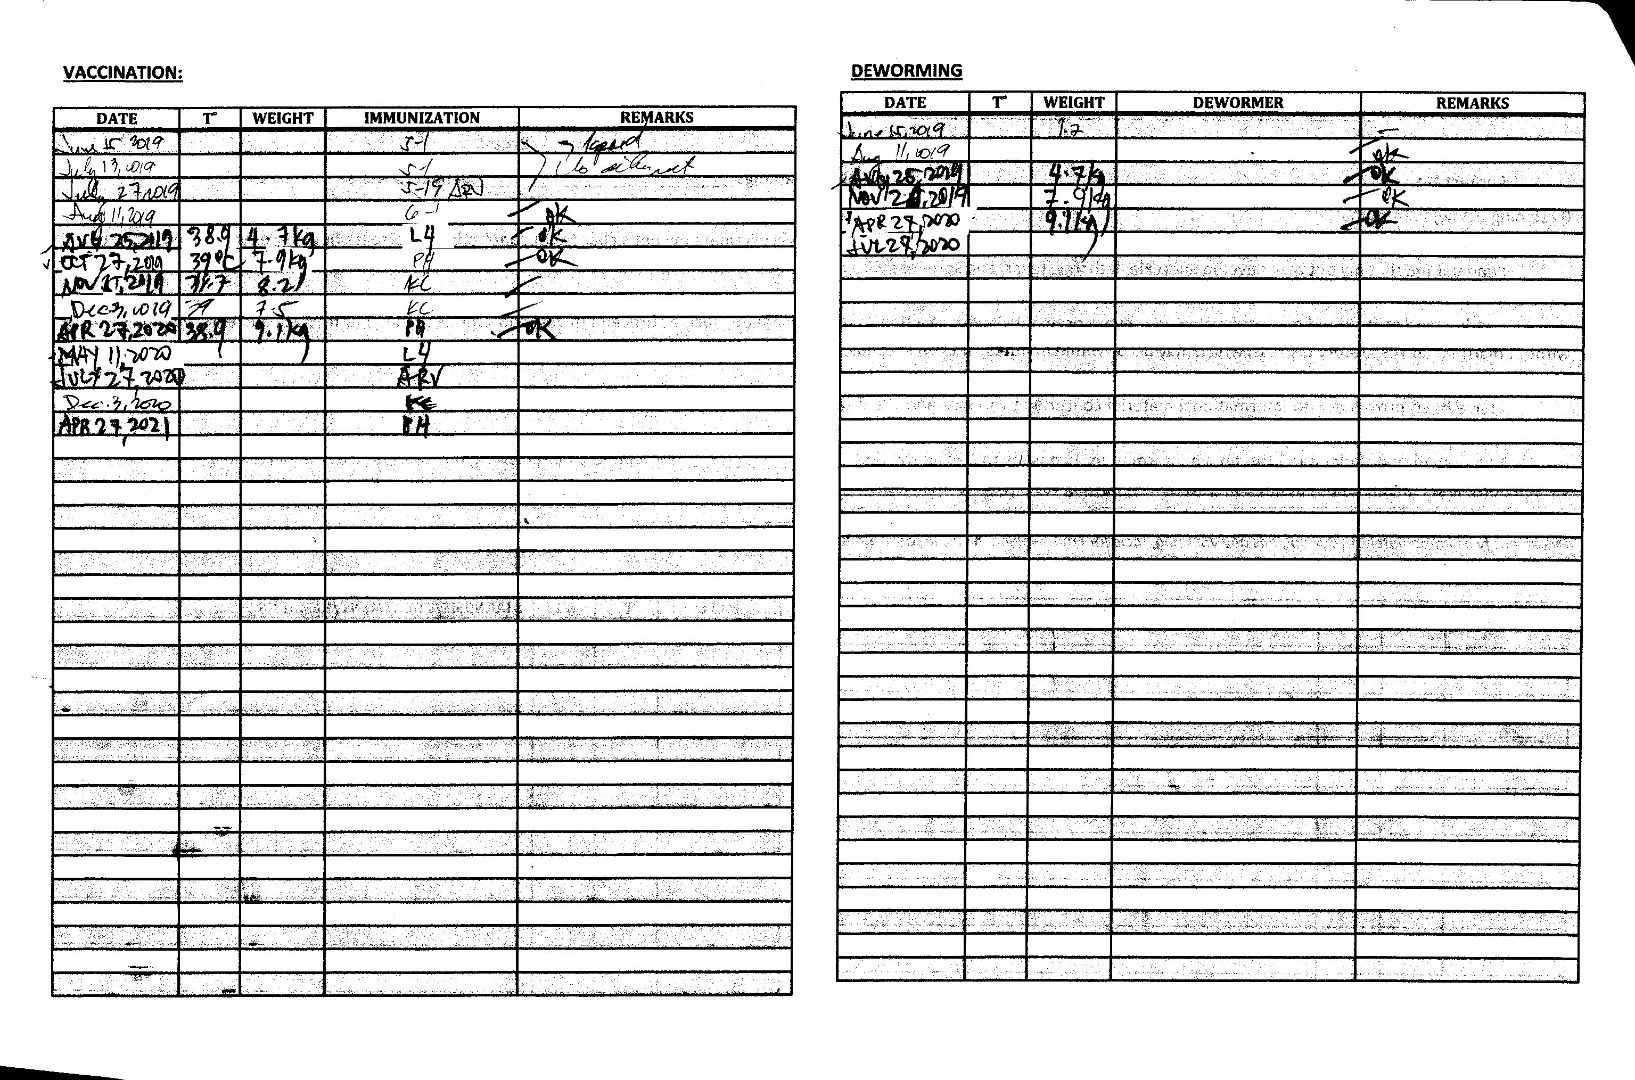 VACCINATION:
DATE T° WEIGHT IMMUNIZATION REMARKS
June 15 2019 5-1
July 13, 2019 5-1
July 27 2019 5-19 ARV
Aug 11, 2019 6-1 OK
AUG 25, 2019 38.9 4.7kg L4 OK
OCT 27, 2019 39°C 7.9kg PH OK
2019 8.2 KC
Dec 3, 2019 39 7.5 KC
APR 27, 2020 38.9 9.1kg PH OK
MAY 11, 2020 L4
JULY 27, 2020 ARV
Dec. 3, 2020 KC
APR 27, 2021 PH
DEWORMING
DATE T° WEIGHT DEWORMER REMARKS
June 15, 2019 1.2
Aug 11, 2019 OK
AUG 25, 2019 4.7kg OK
2019 7.9kg OK
APR 27, 2020 9.1kg OK
2020